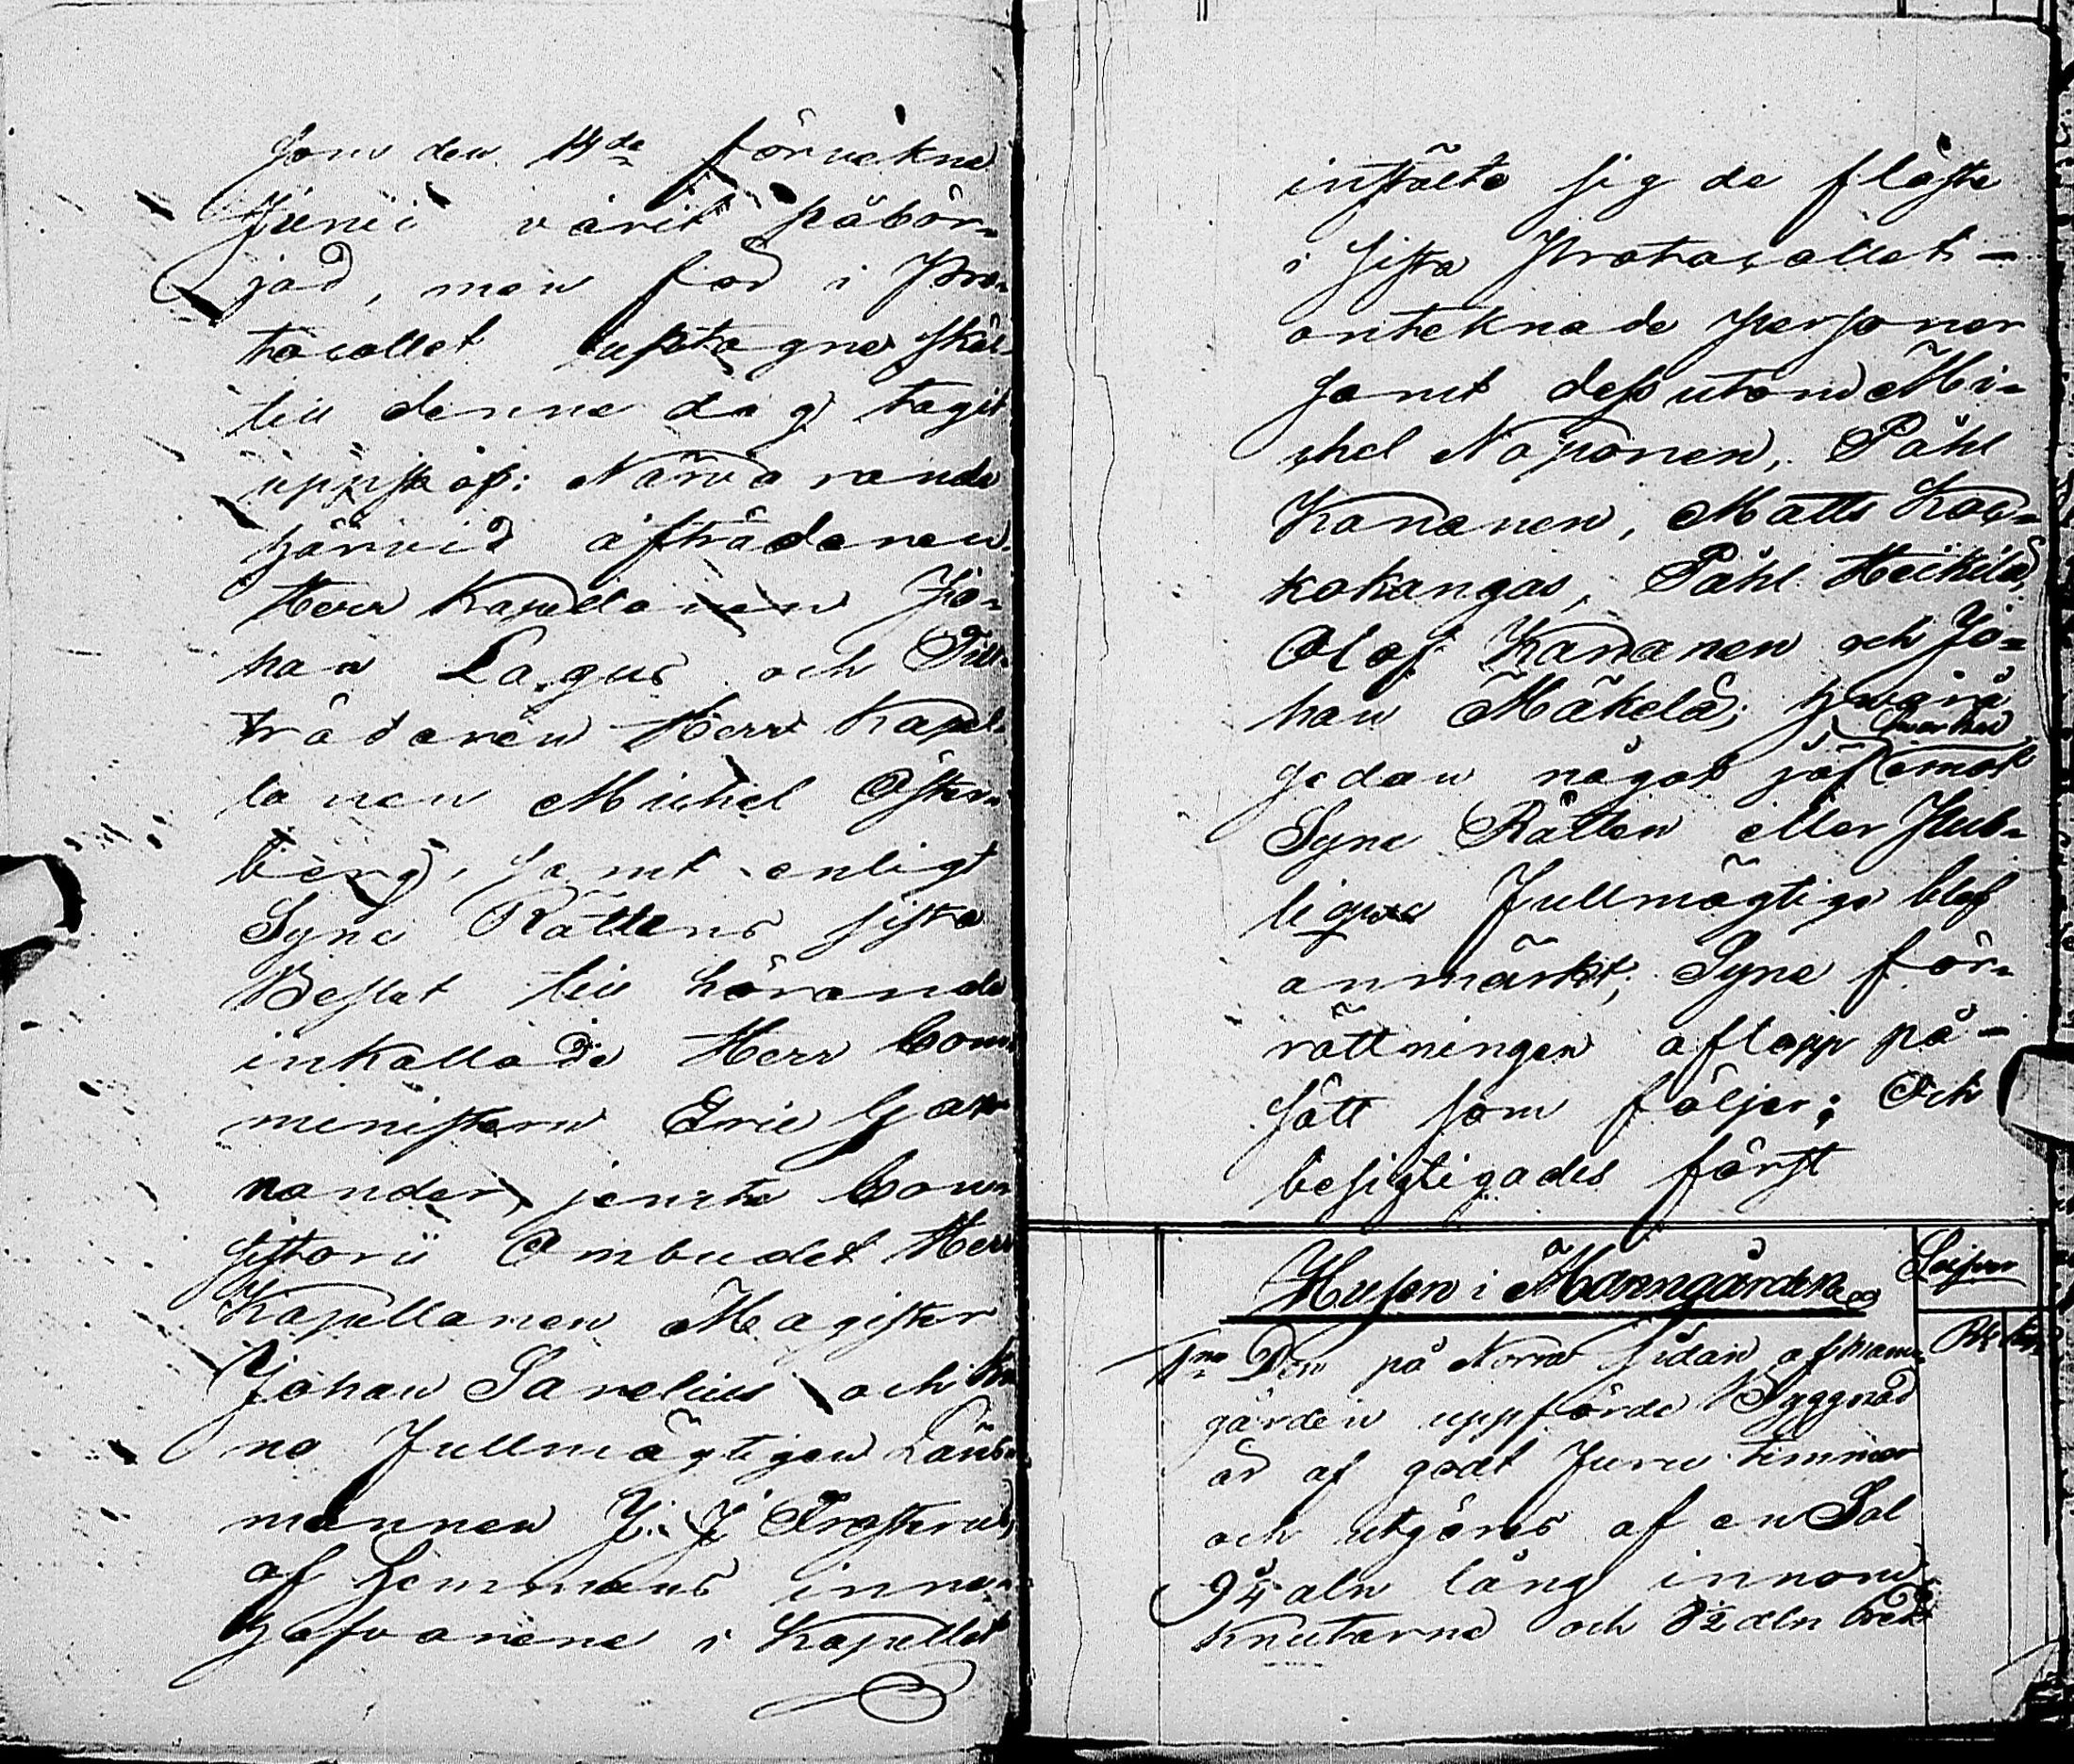 som den 14de förvekne
Junii varit påbör-
jad, men för i Pro-
tocollet uptagne skäl
till denna dag tagit
uppskof: Närvarande
härvid afträdaren
Herr Kapellanen Jo-
han Lagus och Till-
trädaren Herr Kapel-
lanen Michel Öster-
berg, samt enligt
Syne Rättens sista
Beslut till hörande
inkallade Herr Com-
ministern Eric
nander, jemte Con-
sistorii Ombudet Herr
Kapellanen Magister
Johan Sarelius och Kro-
no Fullmägtigen Läns-
mannen J. J.
af Hemmans inne-
hafvarene i Kapellet
instälte sig de fläste
i sista Protocollet -
anteknade Personer
samt dessutom Mi-
chel Naponen, Påhl
Kananen, Matts Kor-
kokangas, Påhl Heikilä,
Olof Kananen och Jo-
han Mäkelä; hvarå
hvarken
sedan något jäf emot
Syne Rätten eller Pub-
lique Fullmägtige blef
anmärkt; Syne för-
rättningen aflopp på -
sätt som följer; Och
besigtigades först
Husen i Manngården
1mo Den på Norra sidan af mann-
gården uppförde Byggnad
är af godt Furu timmer
och utgöres af en Sal
9¾ aln lång innom
Knutarne och 8½ aln bred